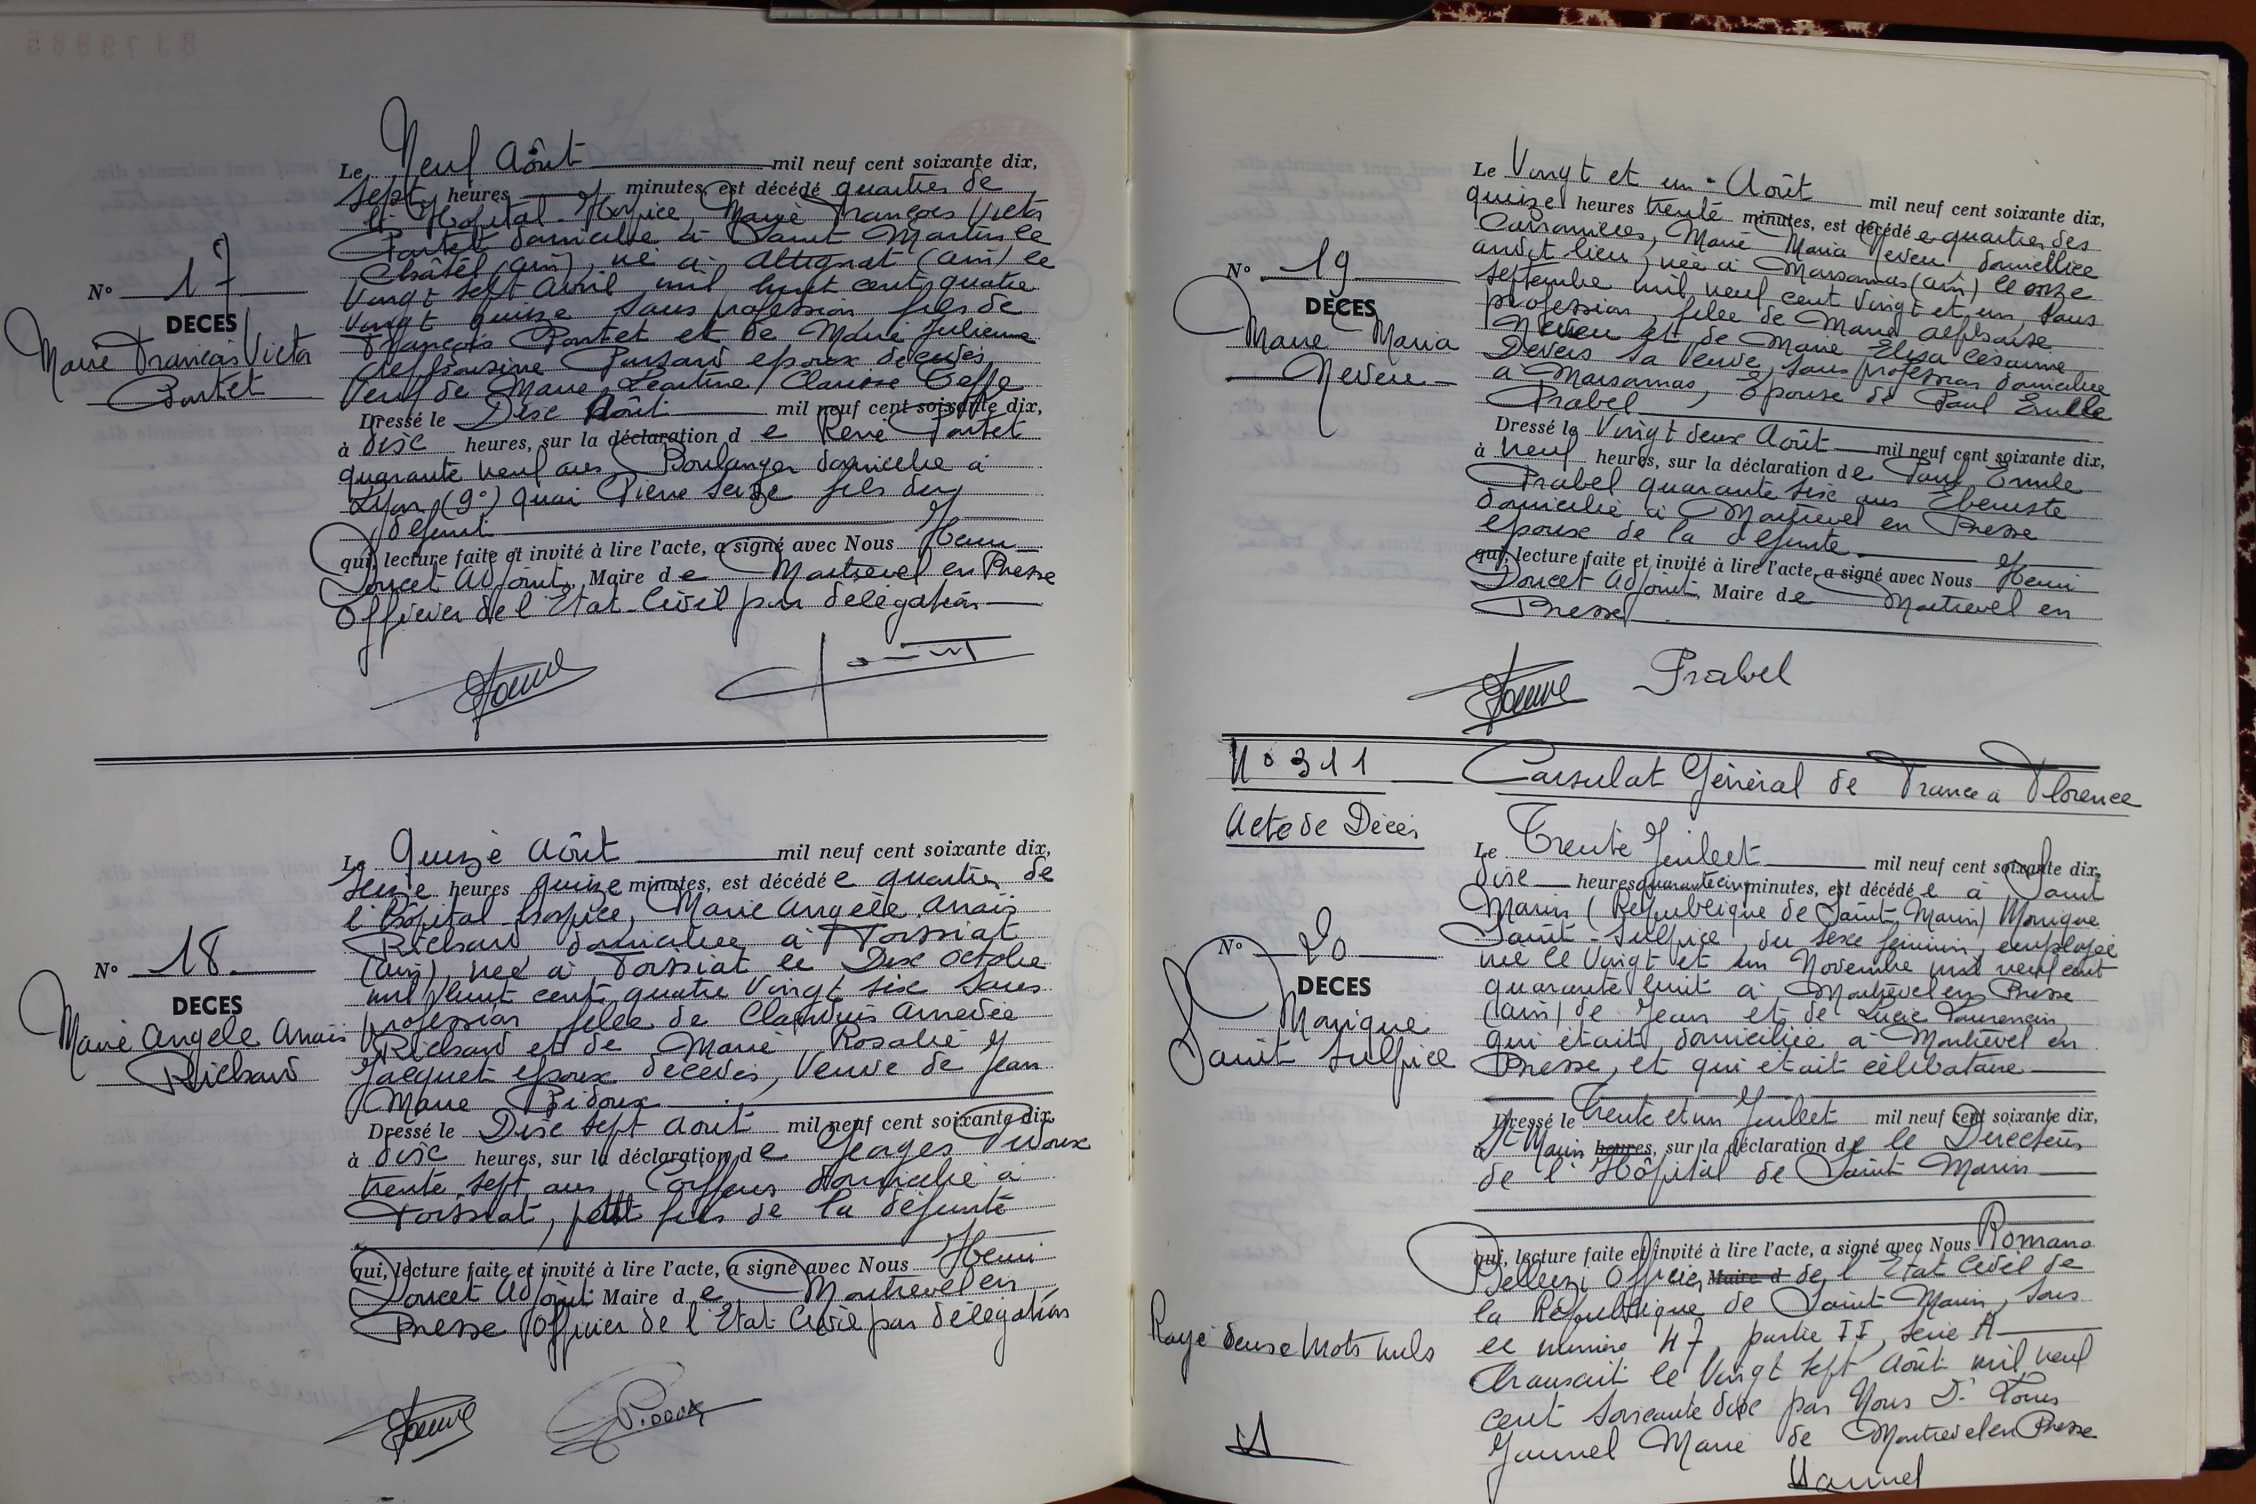 N° 17
DECES
Marie François Victor
Pontet
Le Neuf Août mil neuf cent soixante dix,
sept heures minutes est décédé quartier de
l'Hôpital-Hospice, Marie François Victor
Pontet domicilié à Saint Martin le
Châtel (ain), né à Attignat (ain) le
Vingt sept avril mil huit cent quatre
vingt quinze sans profession fils de
François Pontet et de Marie Julienne
époux décédés
Veuf de Marie Léontine Clarisse
Dressé le Dix Août mil neuf cent soixante dix,
à dix heures, sur la déclaration de René Pontet
quarante neuf ans, Boulanger domicilié à
Lyon (9°) quai Pierre Scize fils du
défunt
qui, lecture faite et invité à lire l'acte, a signé avec Nous Henri
Doucet Adjoint Maire de Montrevel en Bresse
Officier de l'Etat-Civil par délégation
N° 18
DECES
Marie Angèle Anaïs
Richard
Le Quinze Août mil neuf cent soixante dix,
seize heures quinze minutes, est décédée quartier de
l'hôpital-hospice, Marie Angèle Anaïs
Richard domiciliée à Foissiat
(ain), née à Foissiat le Dix Octobre
mil huit cent quatre Vingt six sans
profession fille de Claudius Amédée
Richard et de Marie Rosalie
Jacquet époux décédés, Veuve de Jean
Marie Pidoux
Dressé le Dix sept Août mil neuf cent soixante dix,
à dix heures, sur la déclaration de Georges Pidoux
trente sept ans, Coiffeur domicilié à
Foissiat, petit fils de la défunte
qui, lecture faite et invité à lire l'acte, a signé avec Nous Henri
Doucet Adjoint Maire de Montrevel en
Bresse Officier de l'Etat Civil par délégation
Pidoux
N° 19
DECES
Marie Maria
Neveu
Le Vingt et un Août mil neuf cent soixante dix,
quinze heures trente minutes, est décédée quartier des
Carronnières, Marie Maria Neveu domiciliée
audit lieu, née à Marsonnas (ain) le onze
septembre mil neuf cent vingt et un, sans
profession, fille de Marie Alphonse
Neveu et de Marie Elisa Césarine
Devers sa Veuve, sans profession domiciliée
à Marsonnas, Epouse de Paul Emile
Prabel
Dressé le Vingt deux Août mil neuf cent soixante dix,
à neuf heures, sur la déclaration de Paul Emile
Prabel quarante six ans Ebéniste
domicilié à Montrevel en Bresse
époux de la défunte
qui, lecture faite et invité à lire l'acte, a signé avec Nous Henri
Doucet Adjoint Maire de Montrevel en
Bresse
Prabel
N° 311 Consulat Général de France à Florence
Acte de Décès
N° 20
DECES
Monique
Saint Sulpice
Le Trente Juillet mil neuf cent soixante dix,
dix heures quarante cinq minutes, est décédée à Saint
Marin (République de Saint Marin) Monique
Saint-Sulpice, du sexe féminin, employée
née le Vingt et un Novembre mil neuf cent
quarante huit à Montrevel en Bresse
(ain) de Jean et de Lucie Laurencin
qui était domiciliée à Montrevel en
Bresse, et qui était célibataire
Dressé le Trente et un Juillet mil neuf cent soixante dix,
à St Marin heures, sur la déclaration de le Directeur
de l'Hôpital de Saint Marin
qui, lecture faite et invité à lire l'acte, a signé avec Nous Romano
Officier Maire d de l'Etat Civil de
la République de Saint Marin, sous
le numéro 47, partie II, série A
Transcrit le Vingt sept Août mil neuf
cent soixante dix par Nous Dr Louis
Jaunel Maire de Montrevel en Bresse
Rayé deux mots nuls
Jaunel